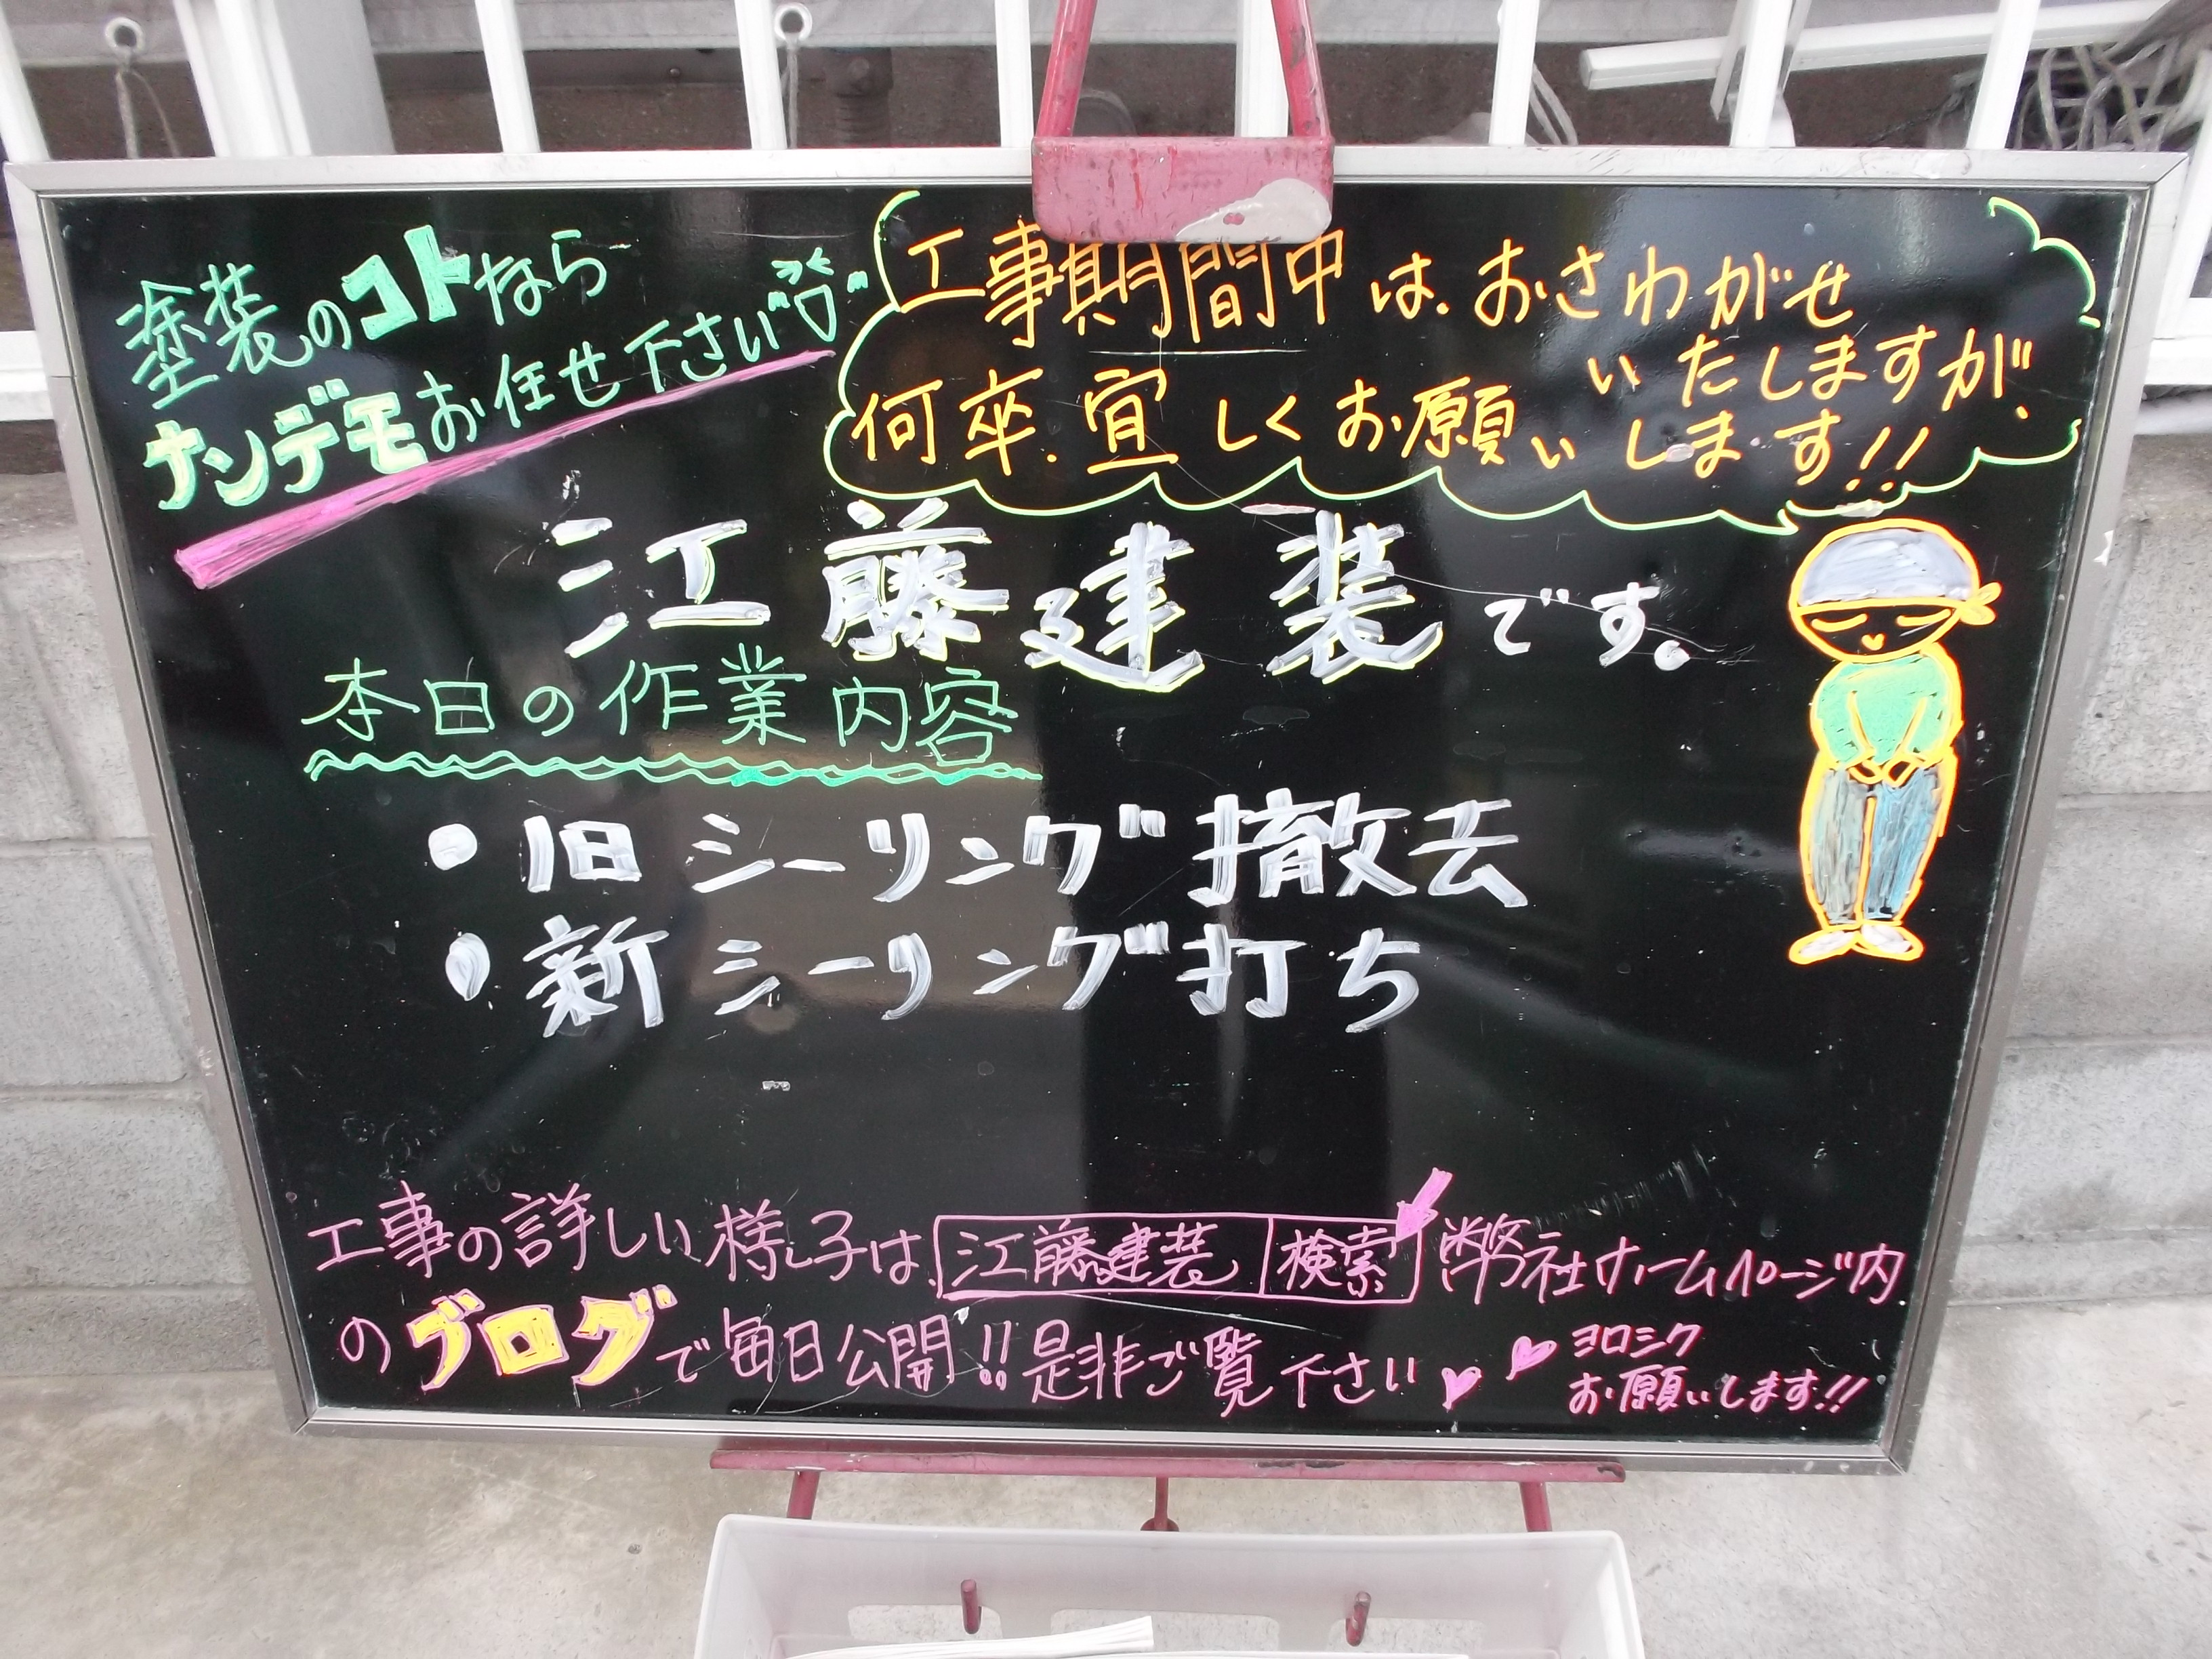 塗装のコトなら
ナンデモお任せ下さい
工事期間中は、おさわがせ
いたしますが、
何卒、宜しくお願いします!!
江藤建装です。
本日の作業内容
・旧シーリング撤去
・新シーリング打ち
工事の詳しい様子は、江藤建装 検索 弊社ホームページ内
のブログで毎日公開!!是非ご覧下さい♥
♥ヨロシク
お願いします!!